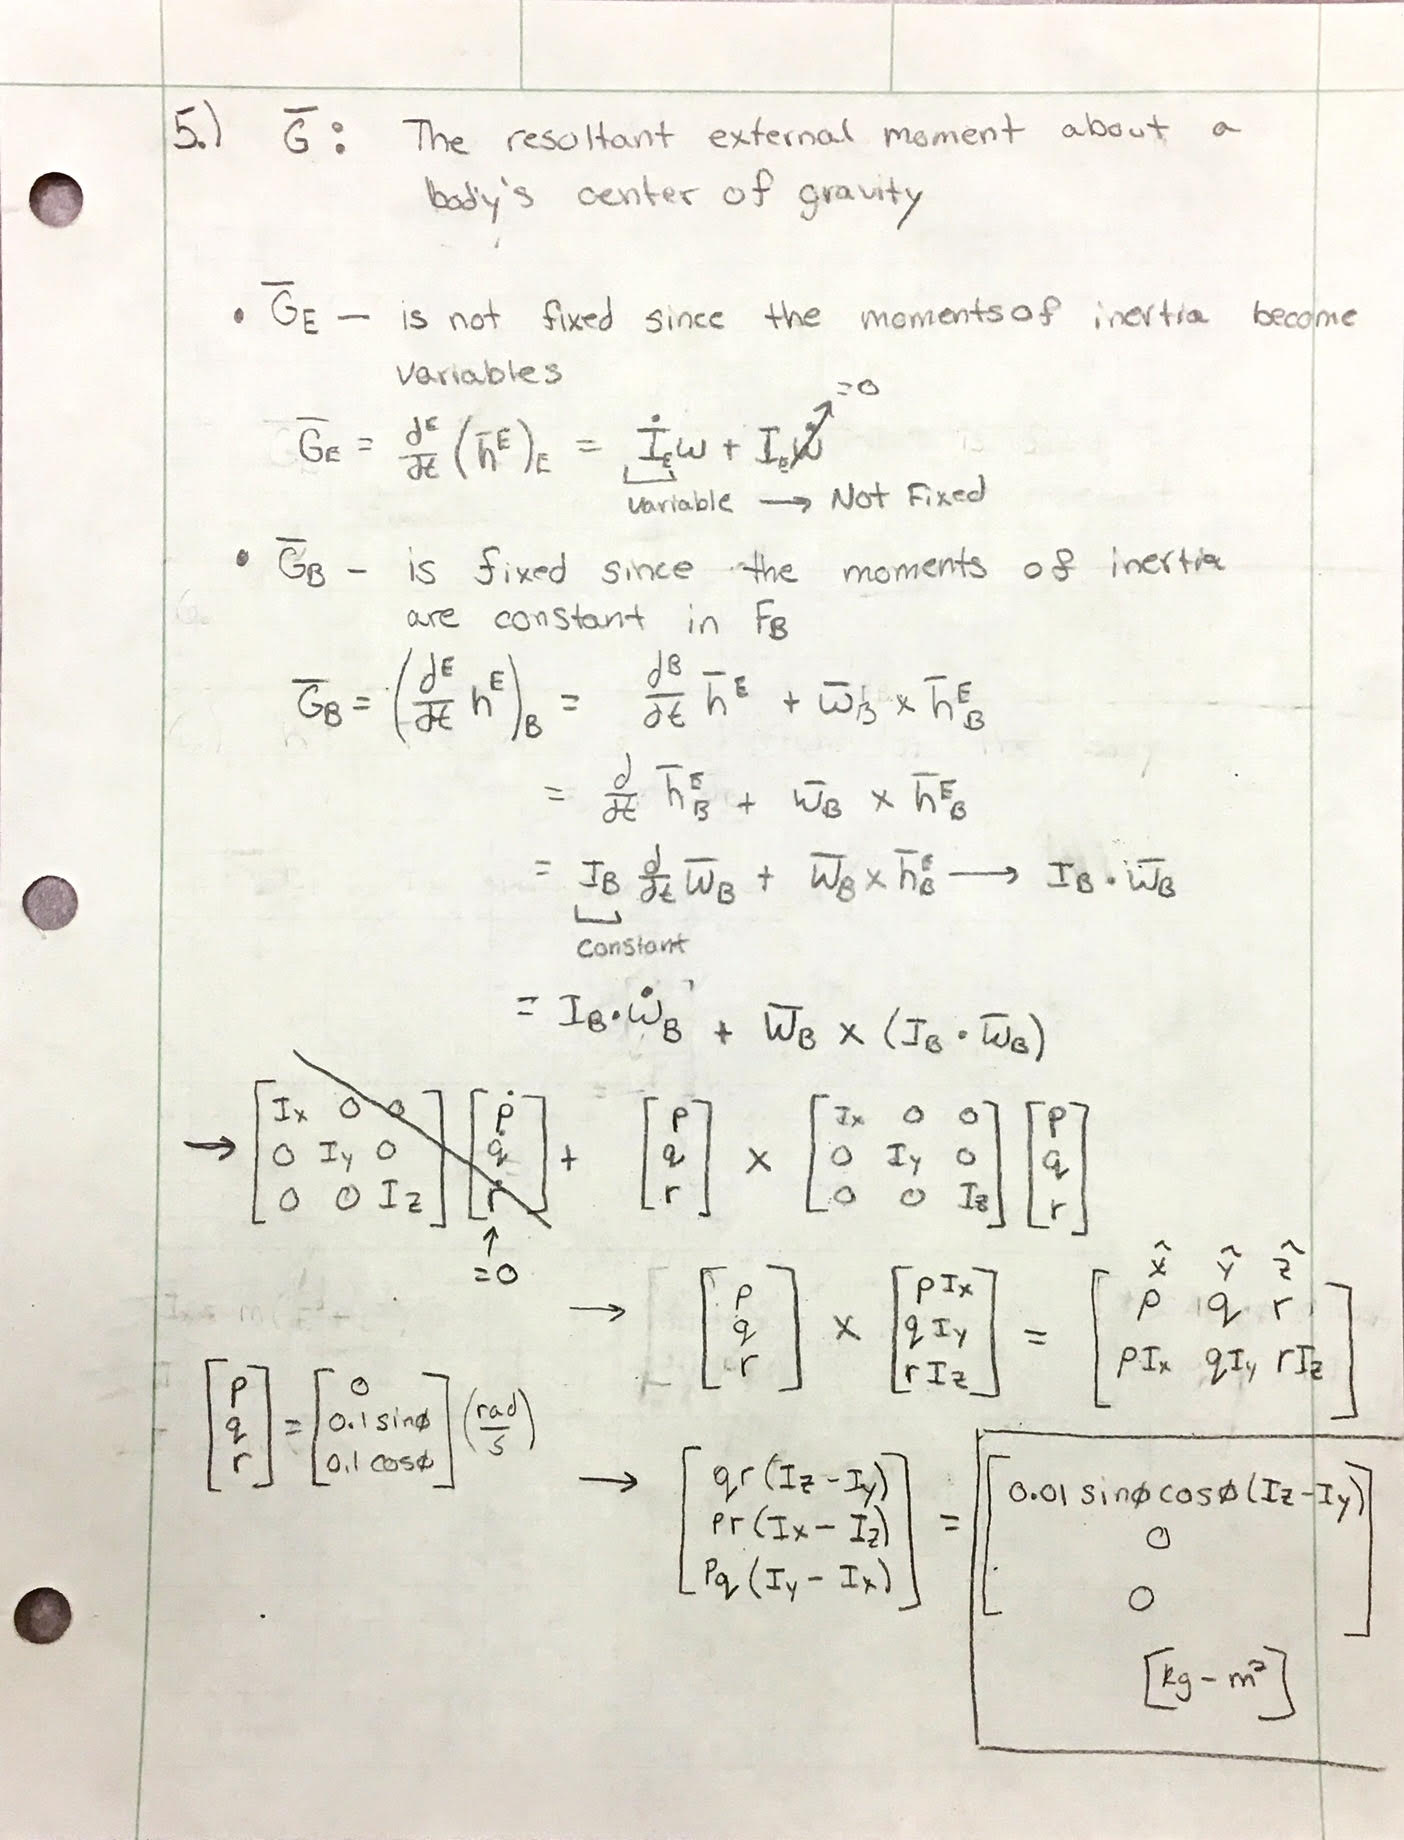 5.) G̅ : The resultant external moment about a
body's center of gravity
• G̅_E — is not fixed since the moments of inertia become
variables
=0
G̅_E = d^E/dt (h̅^E)_E = İ_E ω + I_E ω̇
variable → Not Fixed
• G̅_B – is fixed since the moments of inertia
are constant in F_B
G̅_B = (d^E/dt h^E)_B = d^B/dt h̅^E + ω̅_B × h̅^E_B
= d/dt h̅^E_B + ω̅_B × h̅^E_B
= I_B d/dt ω̅_B + ω̅_B × h̅^E_B → I_B · ω̅_B
constant
= I_B · ω̇_B + ω̅_B × (I_B · ω̅_B)
→ [Ix 0 0; 0 Iy 0; 0 0 Iz] [ṗ; q̇; ṙ] + [p; q; r] × [Ix 0 0; 0 Iy 0; 0 0 Iz] [p; q; r]
↑
=0
→ [p; q; r] × [pIx; qIy; rIz] = [x̂ ŷ ẑ; p q r; pIx qIy rIz]
[p; q; r] = [0; 0.1 sinø; 0.1 cosø] (rad/s)
→ [qr (Iz – Iy); pr (Ix – Iz); pq (Iy – Ix)] = [0.01 sinø cosø (Iz – Iy); 0; 0]
[kg – m²]